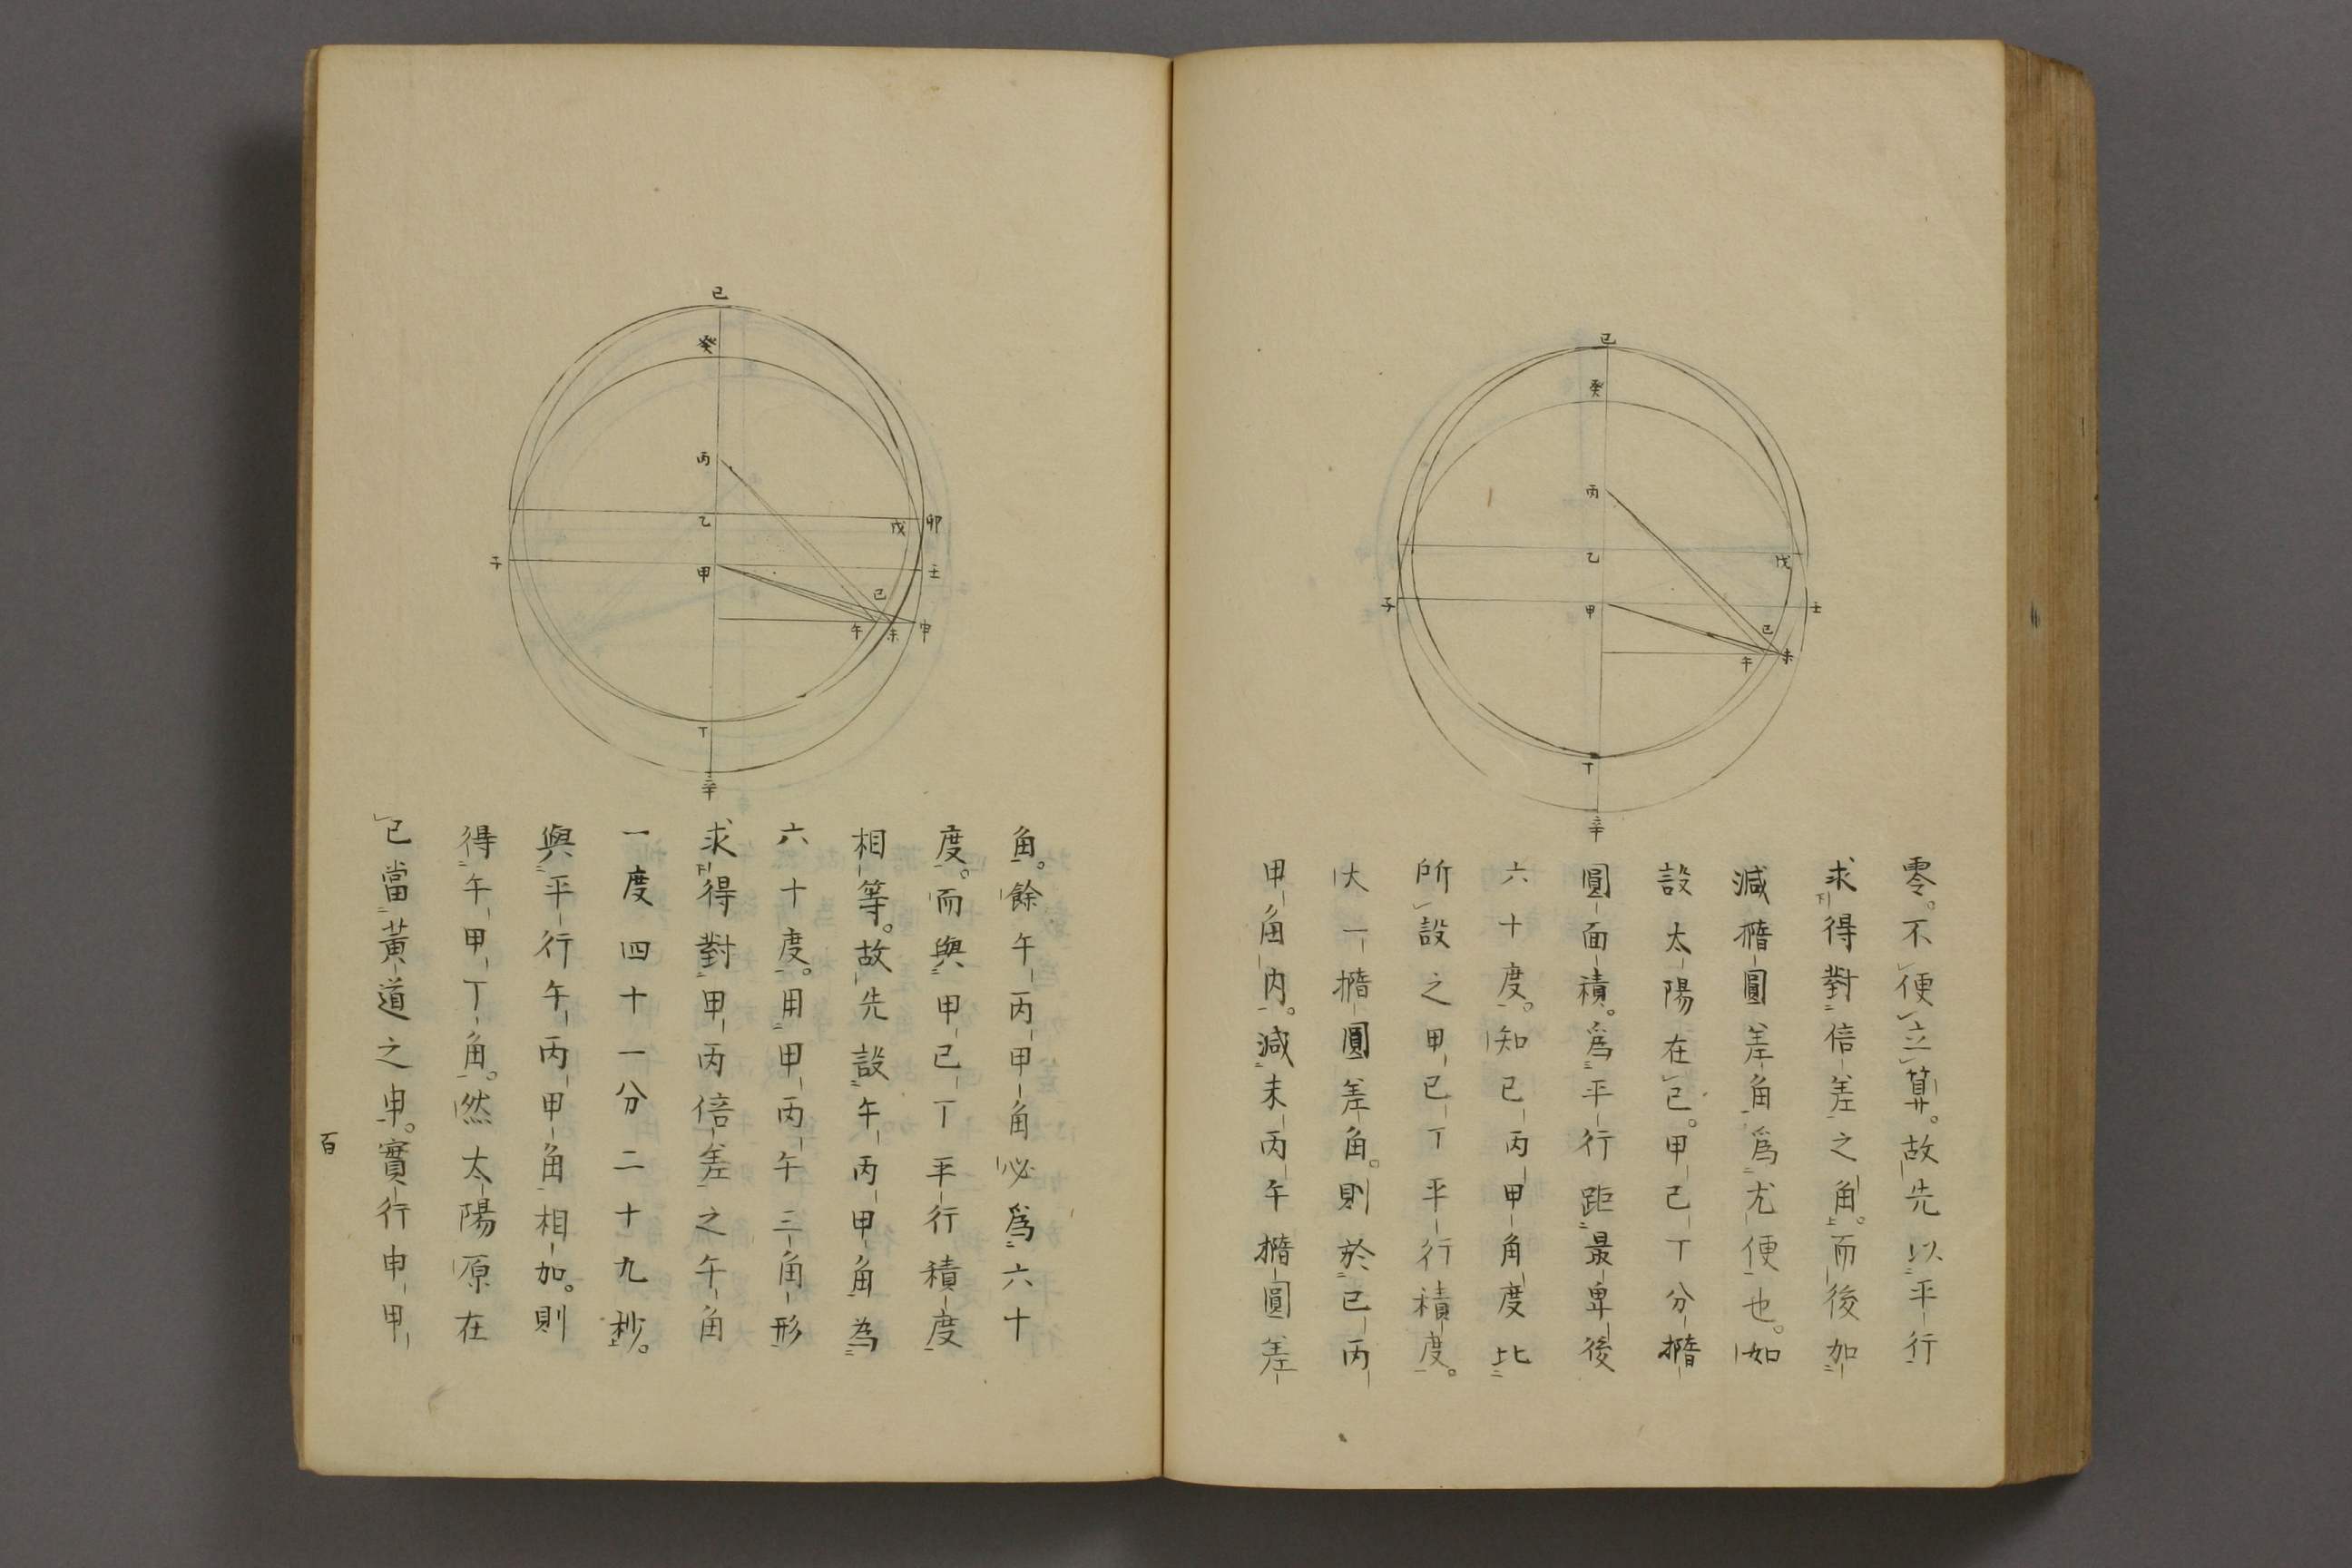 零。不便立算。故先以平行
求得對倍差之角。而後加
減橢圓差角。爲尤便也。如
設太陽在已。甲已丁分橢
圓面積。爲平行距最卑後
六十度。知已丙甲角度比
所設之甲已丁平行積度。
大一橢圓差角。則於已丙
甲角内。減未丙午橢圓差
已
癸
丙
乙
戊
甲
子
壬
已
午
未
丁
辛
角。餘午丙甲角必爲六十
度。而與甲已丁平行積度
相等。故先設午丙甲角為
六十度。用甲丙午三角形
求得對甲丙倍差之午角
一度四十一分二十九秒。
與平行午丙甲角相加。則
得午甲丁角。然太陽原在
已當黃道之申。實行申甲
已
癸
丙
乙
戊
卯
子
甲
壬
已
午
未
申
丁
辛
百